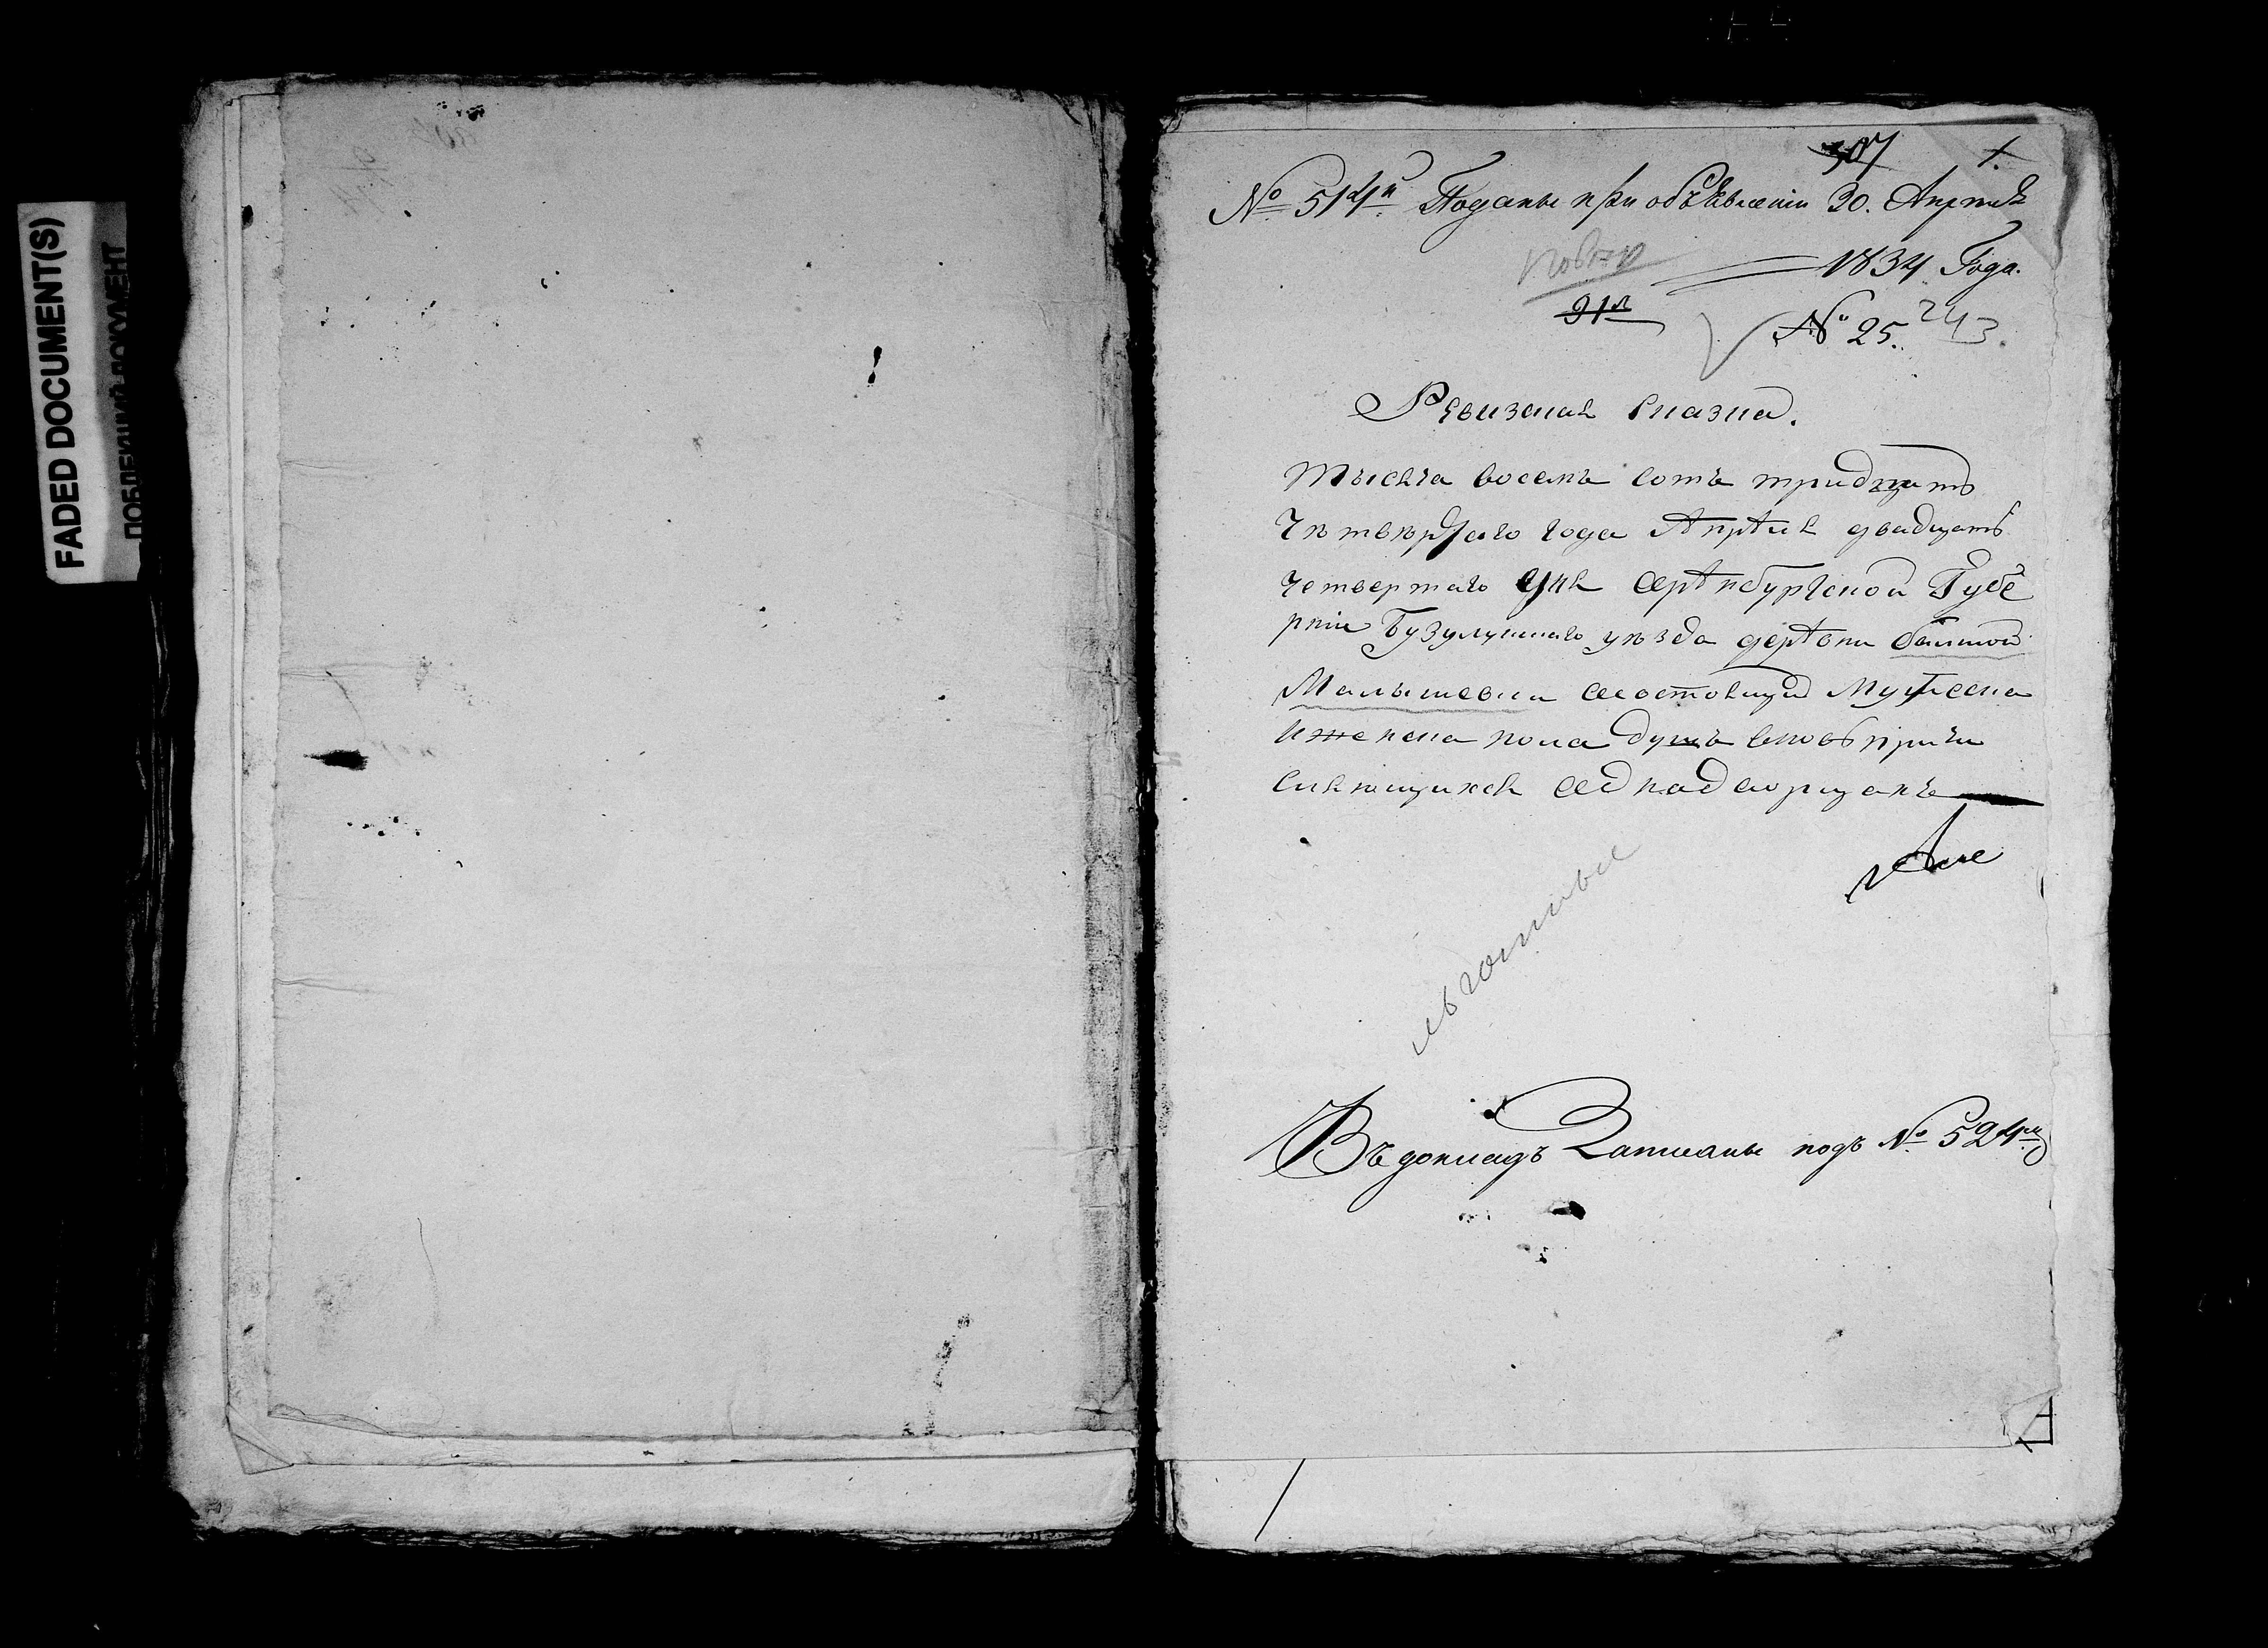 FADED DOCUMENT(S)
ДОКУМЕНТ
307 1.
№ 514й Поданы при объявленіи 30. Апрѣля
1834 Года.
повтор
31л
№ 25. 243.
Ревизская сказка.
тысяча восемь сотъ тридцать
четвѣртаго года Апрѣля двадцать
четвертаго дня Орѣнбургской Губѣ
рніи Бузулукскаго уѣзда дерѣвни балшой
Малышевки состоящія Мужеска
иженска пола душъ вновь причи
сляющихся однадворцахъ
льготные
Въ докладъ Записаны подъ № 524м